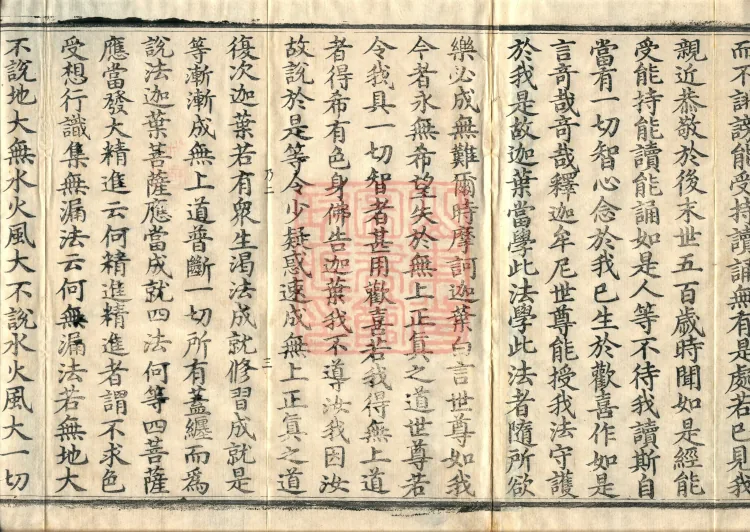 而不誹謗能受持讀誦無有是處若已見我
親近恭敬於後末世五百歲時聞如是經能
受能持能讀能誦如是人等不待我讀斯自
當有一切智心念於我已生於歡喜作如是
言奇哉奇哉釋迦牟尼世尊能授我法守護
於我是故迦葉當學此法學此法者隨所欲
樂必成無難爾時摩訶迦葉白言世尊如我
今者永無希望失於無上正真之道世尊若
令我具一切智者甚用歡喜若我得無上道
者得希有色身佛告迦葉我不導汝我因汝
故說於是等令少疑惑速成無上正真之道
乃二
三
復次迦葉若有眾生渴法成就修習成就是
等漸漸成無上道普斷一切所有蓋纏而為
說法迦葉菩薩應當成就四法何等四菩薩
應當發大精進云何精進精進者謂不求色
受想行識集無漏法云何無漏法若無地大
不說地大無水火風大不說水火風大一切